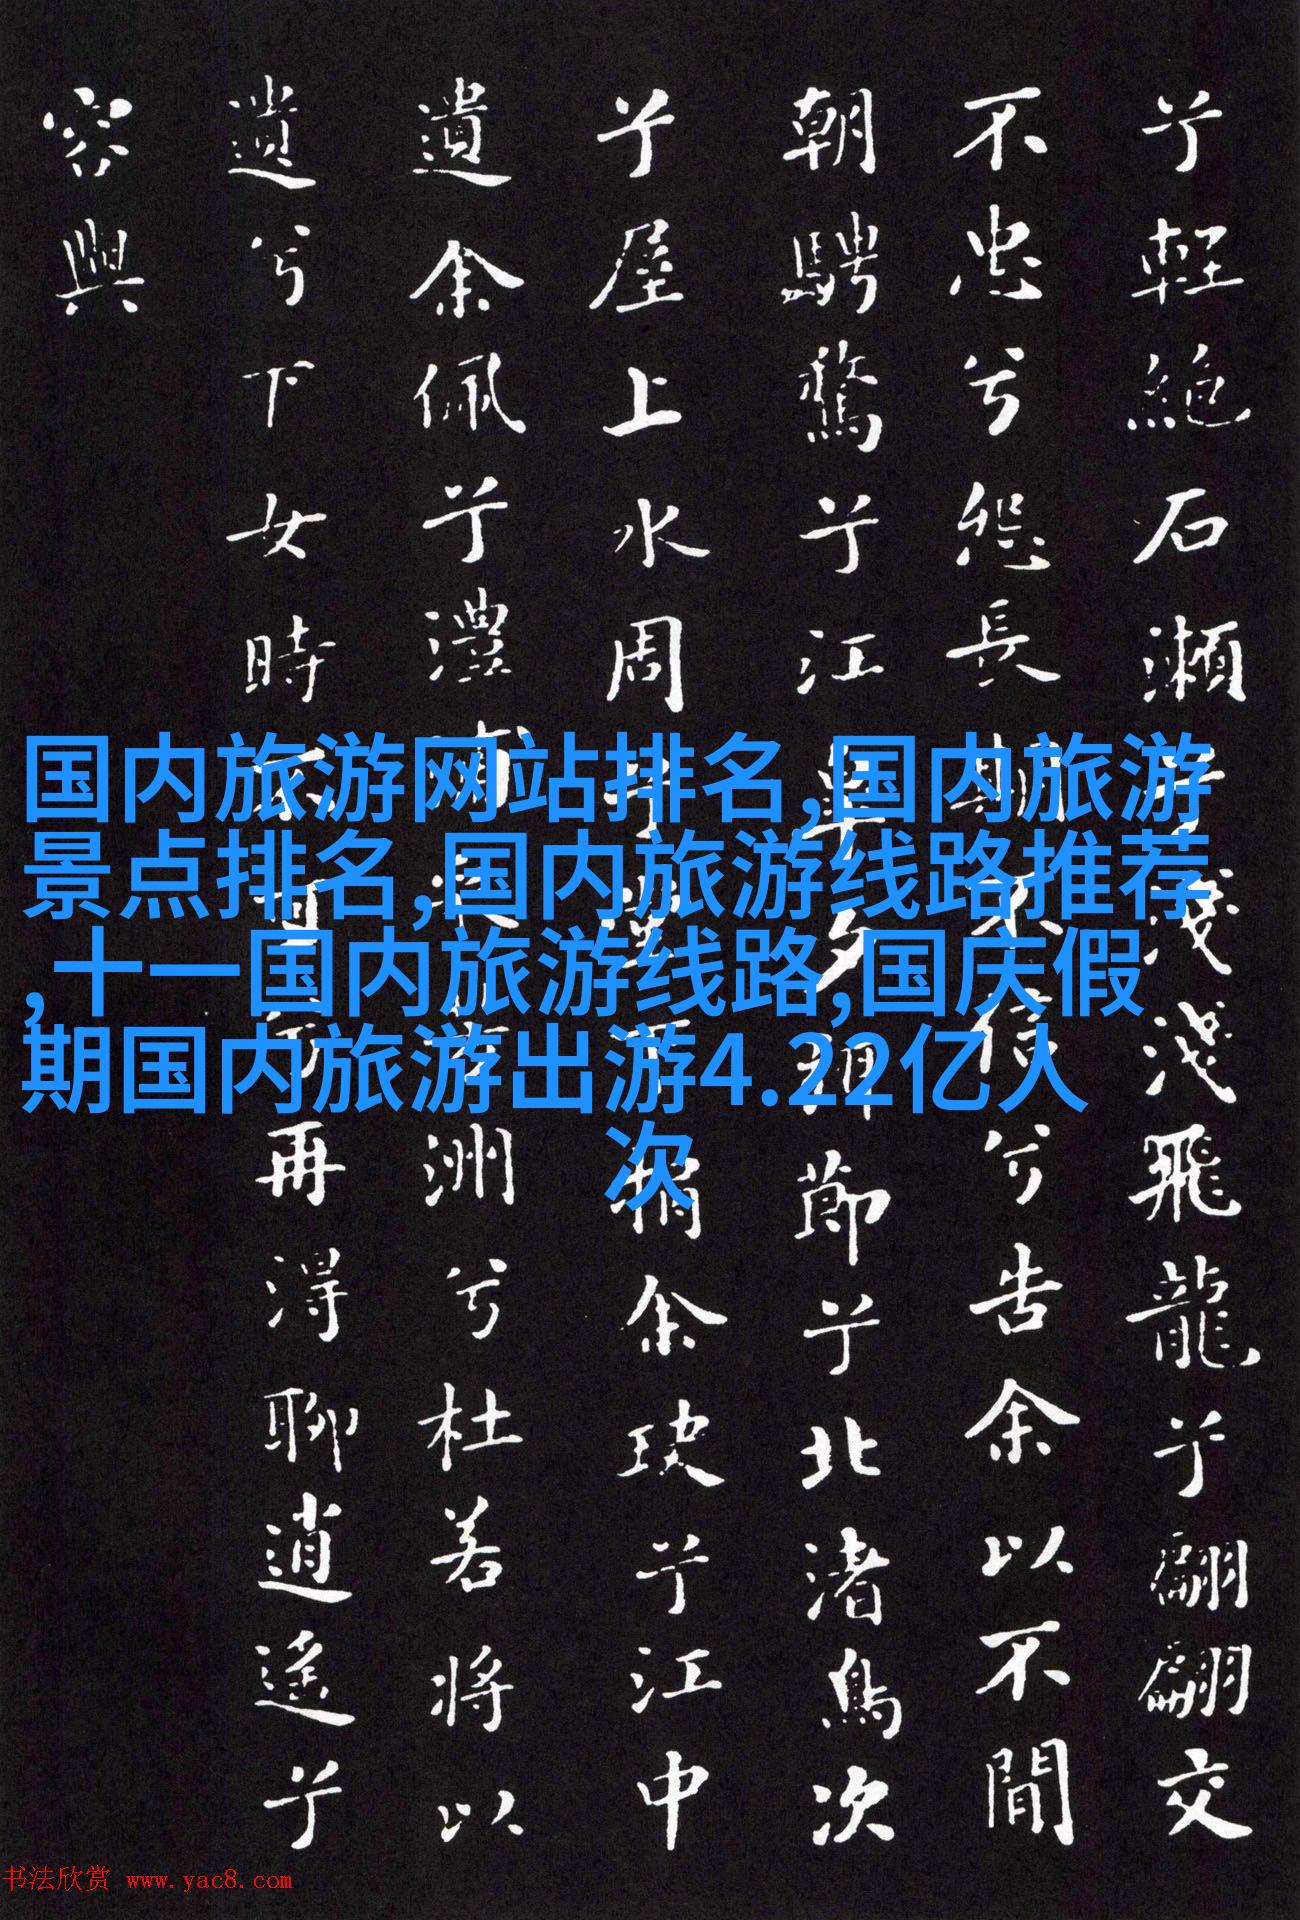 兮輕絕石瀨兮淺淺飛龍兮翩翩交
不忠兮怨長期不信兮告余以不閒
朝騁騖兮江皋夕弭節兮北渚鳥次
兮屋上水周兮堂下捐余玦兮江中
遺余佩兮澧浦采芳洲兮杜若將以
遺兮下女時不可兮再得聊逍遙兮
容與
国内旅游网站排名,国内旅游
景点排名,国内旅游线路推荐
,十一国内旅游线路,国庆假
期国内旅游出游4.22亿人
次
书法欣赏 www.yac8.com